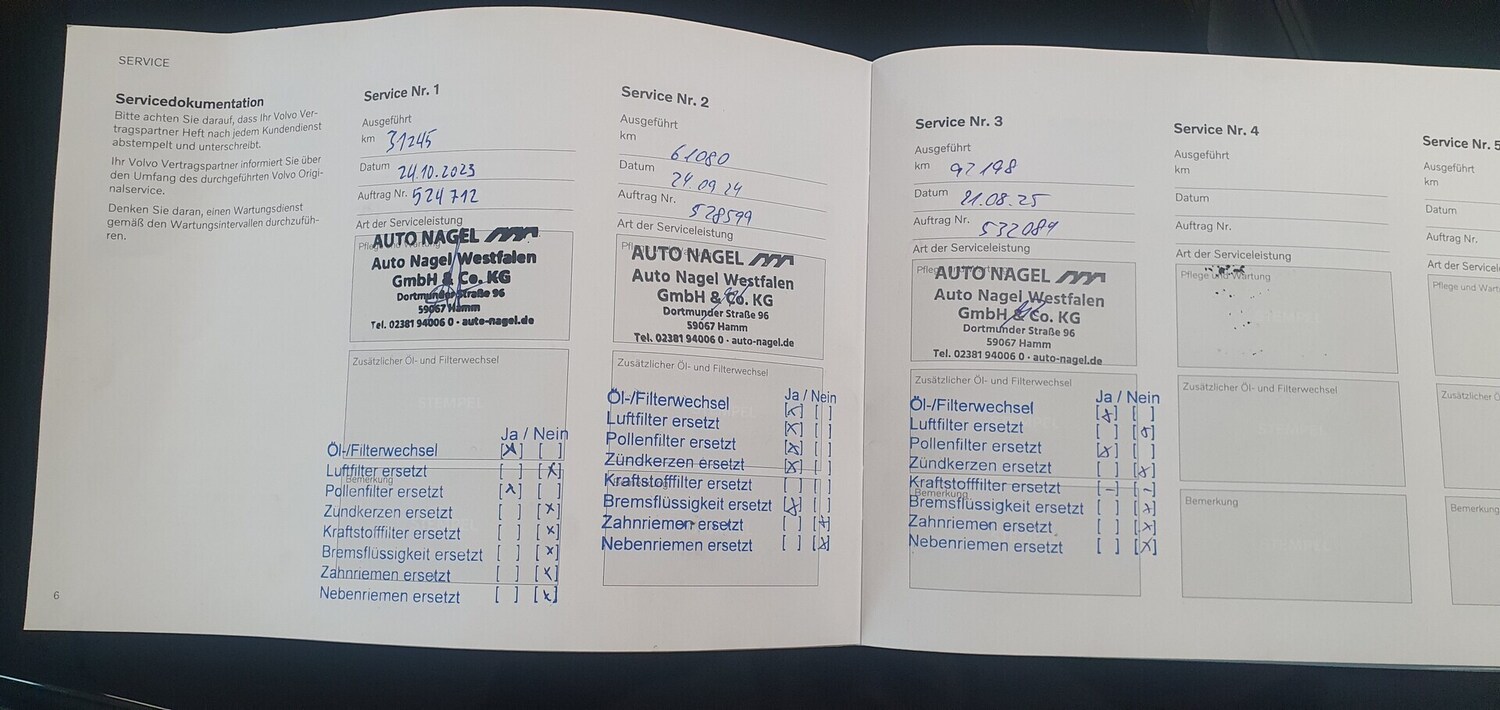 SERVICE
Servicedokumentation
Bitte achten Sie darauf, dass Ihr Volvo Ver-
tragspartner Heft nach jedem Kundendienst
abstempelt und unterschreibt.
Ihr Volvo Vertragspartner informiert Sie über
den Umfang des durchgeführten Volvo Origi-
nalservice.
Denken Sie daran, einen Wartungsdienst
gemäß den Wartungsintervallen durchzufüh-
ren.
6
Service Nr. 1
Ausgeführt
km 31245
Datum 24.10.2023
Auftrag Nr. 524712
Art der Serviceleistung
Pflege und Wartung
AUTO NAGEL
Auto Nagel Westfalen
GmbH & Co. KG
Dortmunder Straße 96
59067 Hamm
Tel. 02381 94006 0 · auto-nagel.de
Zusätzlicher Öl- und Filterwechsel
STEMPEL
Ja / Nein
Öl-/Filterwechsel [x] [ ]
Luftfilter ersetzt [ ] [x]
Bemerkung
Pollenfilter ersetzt [x] [ ]
Zündkerzen ersetzt [ ] [x]
Kraftstofffilter ersetzt [ ] [x]
Bremsflüssigkeit ersetzt [ ] [x]
Zahnriemen ersetzt [ ] [x]
Nebenriemen ersetzt [ ] [x]
Service Nr. 2
Ausgeführt
km 61080
Datum 24.09.24
Auftrag Nr. 528599
Art der Serviceleistung
AUTO NAGEL
Auto Nagel Westfalen
GmbH & Co. KG
Dortmunder Straße 96
59067 Hamm
Tel. 02381 94006 0 · auto-nagel.de
Zusätzlicher Öl- und Filterwechsel
Ja / Nein
Öl-/Filterwechsel [x] [ ]
Luftfilter ersetzt [x] [ ]
Pollenfilter ersetzt [x] [ ]
Zündkerzen ersetzt [x] [ ]
Kraftstofffilter ersetzt [ ] [ ]
Bremsflüssigkeit ersetzt [x] [ ]
Zahnriemen ersetzt [ ] [x]
Nebenriemen ersetzt [ ] [x]
Service Nr. 3
Ausgeführt
km 92198
Datum 21.08.25
Auftrag Nr. 532089
Art der Serviceleistung
AUTO NAGEL
Auto Nagel Westfalen
GmbH & Co. KG
Dortmunder Straße 96
59067 Hamm
Tel. 02381 94006 0 · auto-nagel.de
Zusätzlicher Öl- und Filterwechsel
Ja / Nein
Öl-/Filterwechsel [x] [ ]
Luftfilter ersetzt [ ] [x]
Pollenfilter ersetzt [x] [ ]
Zündkerzen ersetzt [ ] [x]
Kraftstofffilter ersetzt [-] [-]
Bemerkung
Bremsflüssigkeit ersetzt [ ] [x]
Zahnriemen ersetzt [ ] [x]
Nebenriemen ersetzt [ ] [x]
Service Nr. 4
Ausgeführt
km
Datum
Auftrag Nr.
Art der Serviceleistung
Pflege und Wartung
Zusätzlicher Öl- und Filterwechsel
Bemerkung
STEMPEL
Service Nr. 5
Ausgeführt
km
Datum
Auftrag Nr.
Art der Servicel
Pflege und Wart
Zusätzlicher Ö
Bemerkung